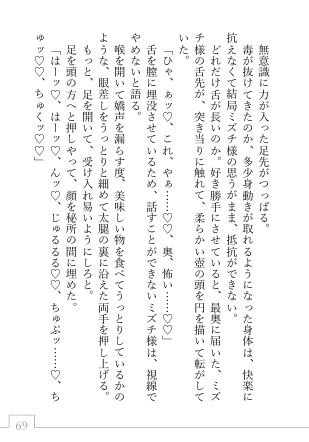 無意識に力が入った足先がつっぱる。
毒が抜けてきたのか、多少身動きが取れるようになった身体は、快楽に
抗えなくて結局ミズチ様の思うがまま、抵抗ができない。
どれだけ舌が長いのか。好き勝手にさせていると、最奥に届いた、ミズ
チ様の舌先が、突き当りに触れて、柔らかい壺の頭を円を描いて転がして
いた。
「ひゃ、ぁッ♡、これ、やぁ……♡♡、奥、怖い……♡♡」
舌を膣に埋没させているため、話すことができないミズチ様は、視線で
やめないと語る。
喉を開いて嬌声を漏らす度、美味しい物を食べてうっとりしているかの
ような、眼差しをうっとりと細めて太腿の裏に沿えた両手を押し上げる。
もっと、足を開いて、受け入れ易いようにしろと。
足を頭の方へと押しやって、顔を秘所の間に埋めた。
「はーッ♡、はーッ♡、んッ♡、じゅるるる♡♡、ちゅぶッ……♡、ち
ゅッ♡♡、ちゅくッ♡♡」
69